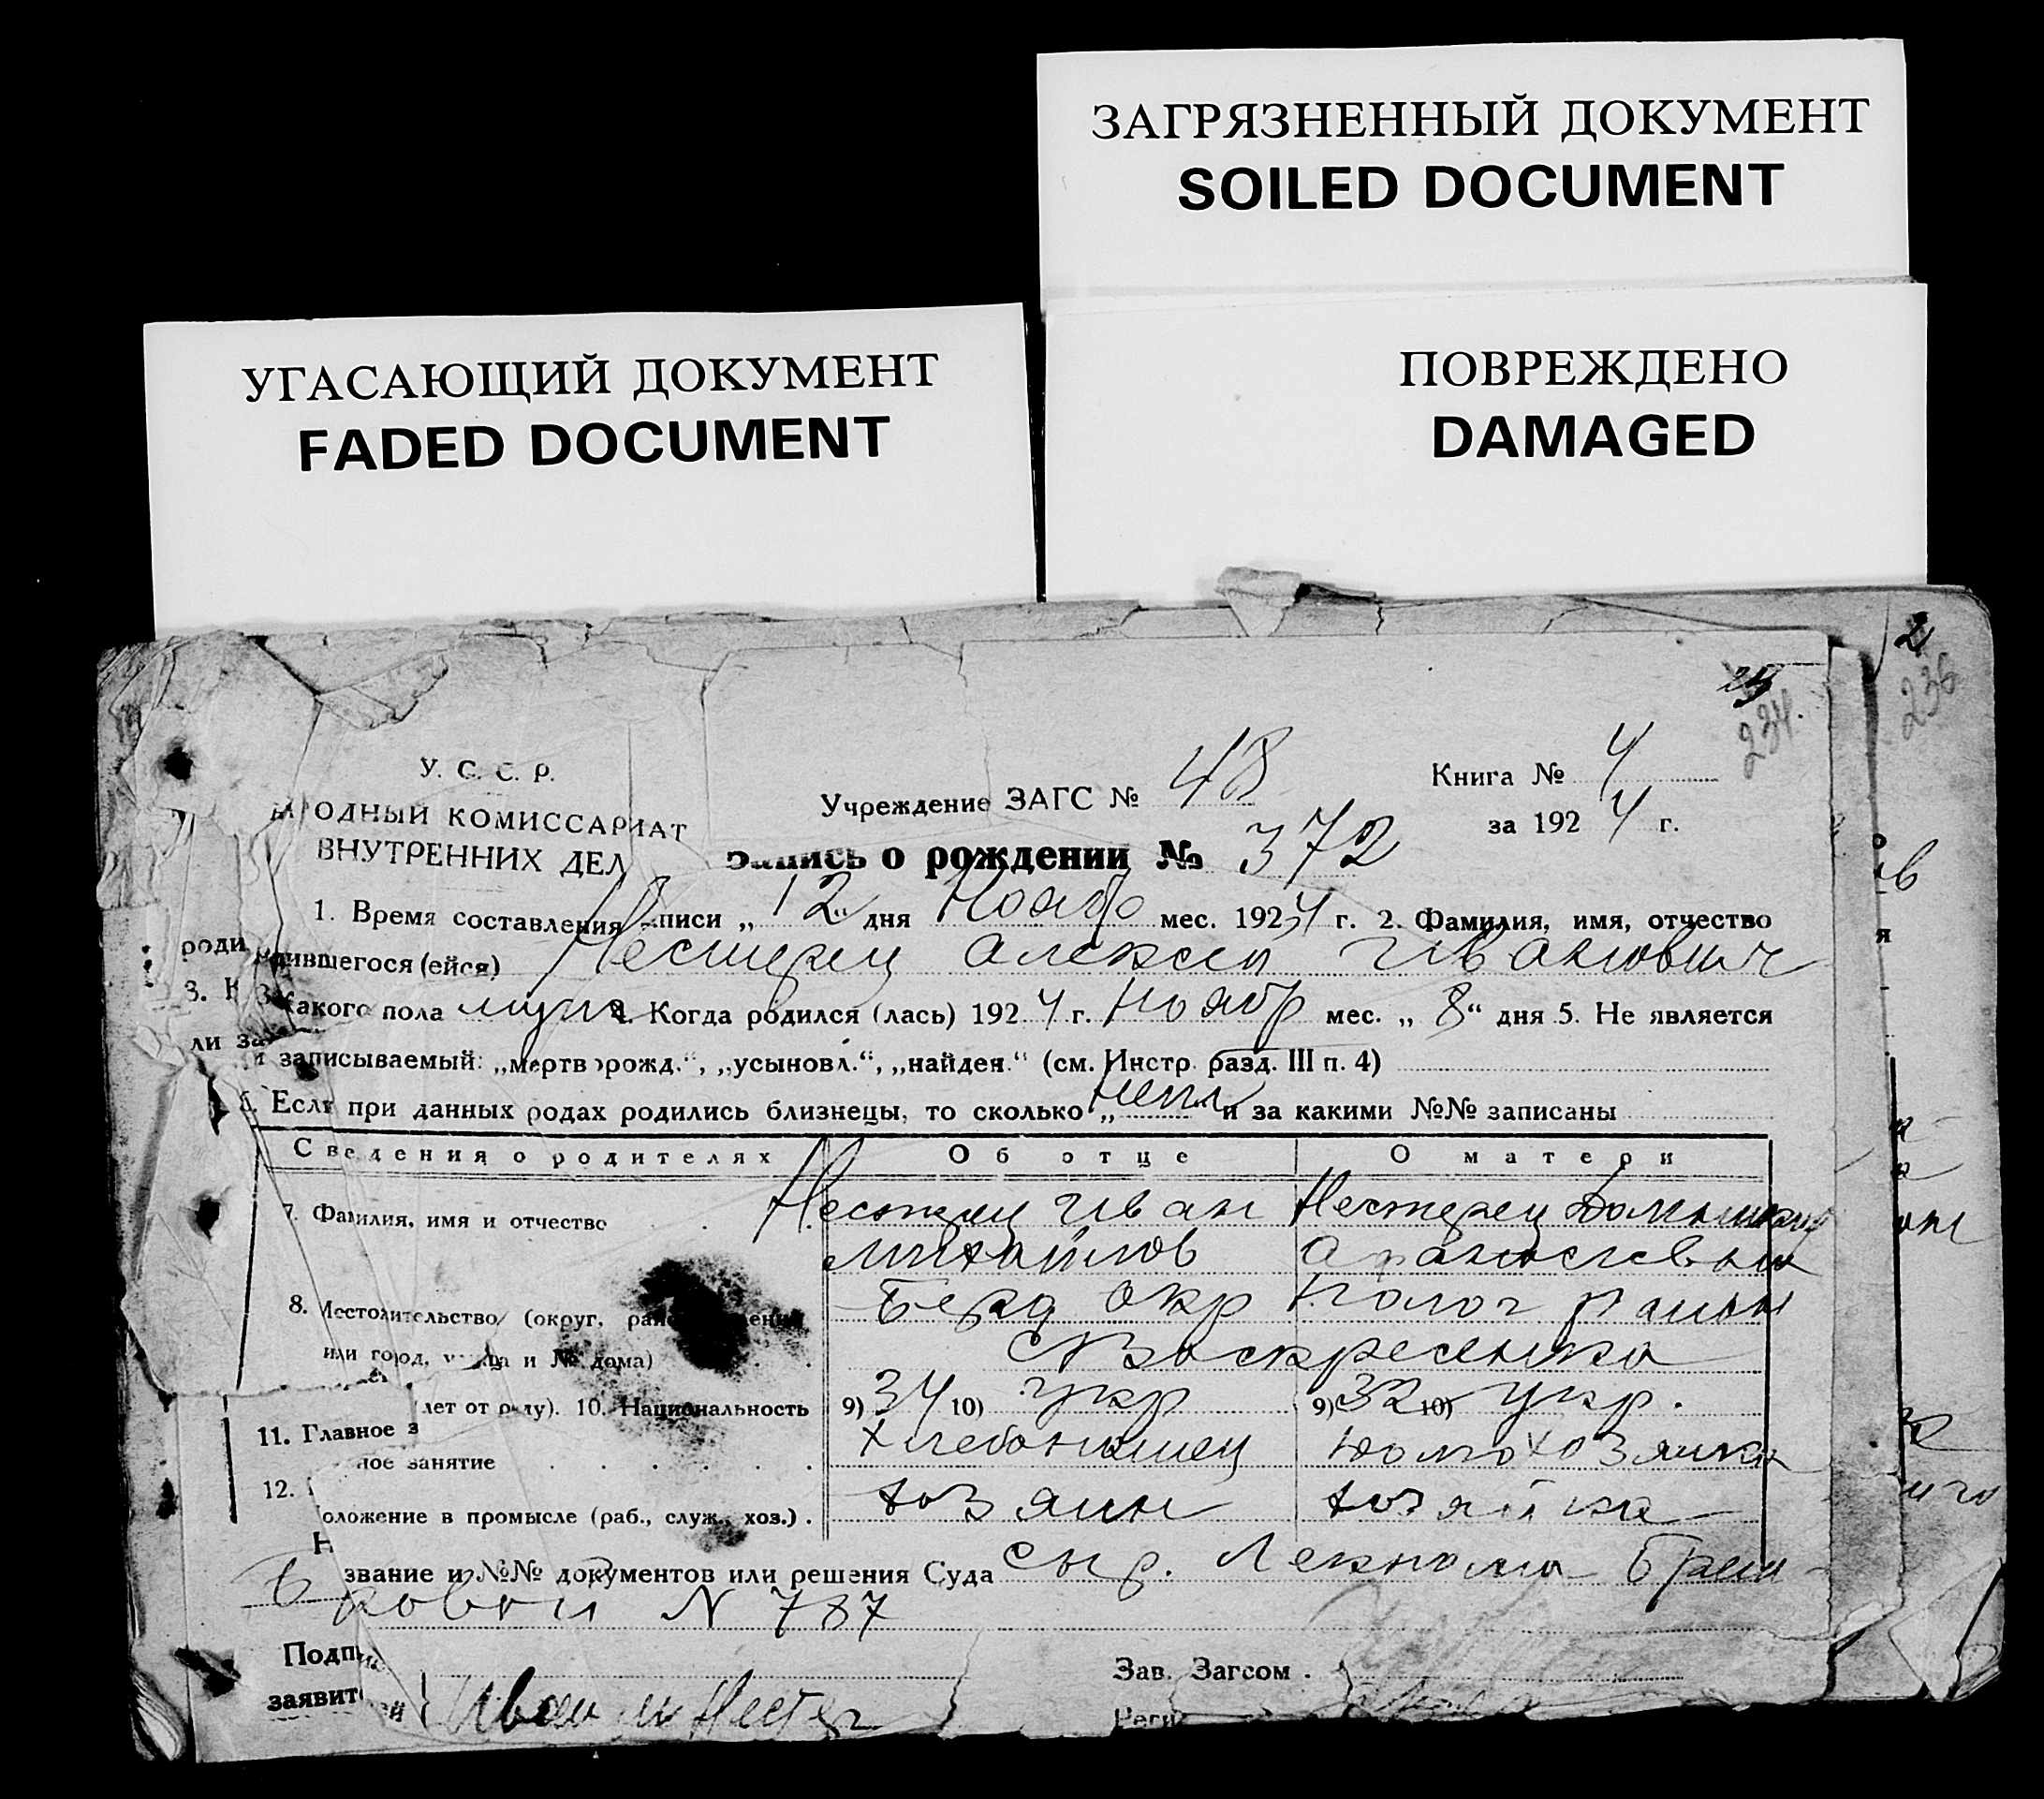 ЗАГРЯЗНЕННЫЙ ДОКУМЕНТ
SOILED DOCUMENT
УГАСАЮЩИЙ ДОКУМЕНТ
FADED DOCUMENT
ПОВРЕЖДЕНО
DAMAGED
2
236
234.
У. С. С. Р.
РОДНЫЙ КОМИССАРИАТ
ВНУТРЕННИХ ДЕЛ
Учреждение ЗАГС № 48
Книга № 4
за 1924 г.
Запись о рождении № 372
1. Время составления записи „12“ дня Нояб мес. 1924 г. 2. Фамилия, имя, отчество
родившегося (ейся) Нестерец Алексей Иванович
3. Какого пола муж 4. Когда родился (лась) 1924 г. Ноябр мес. „8“ дня 5. Не является
ли записываемый: „мертворожд.“, „усыновл.“, „найден.“ (см. Инстр. разд. III п. 4)
6. Если при данных родах родились близнецы, то сколько „ “ и за какими №№ записаны
Сведения о родителях Об отце О матери
7. Фамилия, имя и отчество Нестерец Иван Нестерец
Михайлов
8. Местожительство (округ, или город, и № дома) Берд окр Полог район
Воскресенка
лет от роду). 10. Национальность 9) 34 10) укр 9) 32 10) укр.
11. Главное занятие хлебопашец домохозяйка
12. положение в промысле (раб., служ., хоз.) хозяин хозяйка
звание и №№ документов или решения Суда
N 787
Зав. Загсом
Иван Нестер